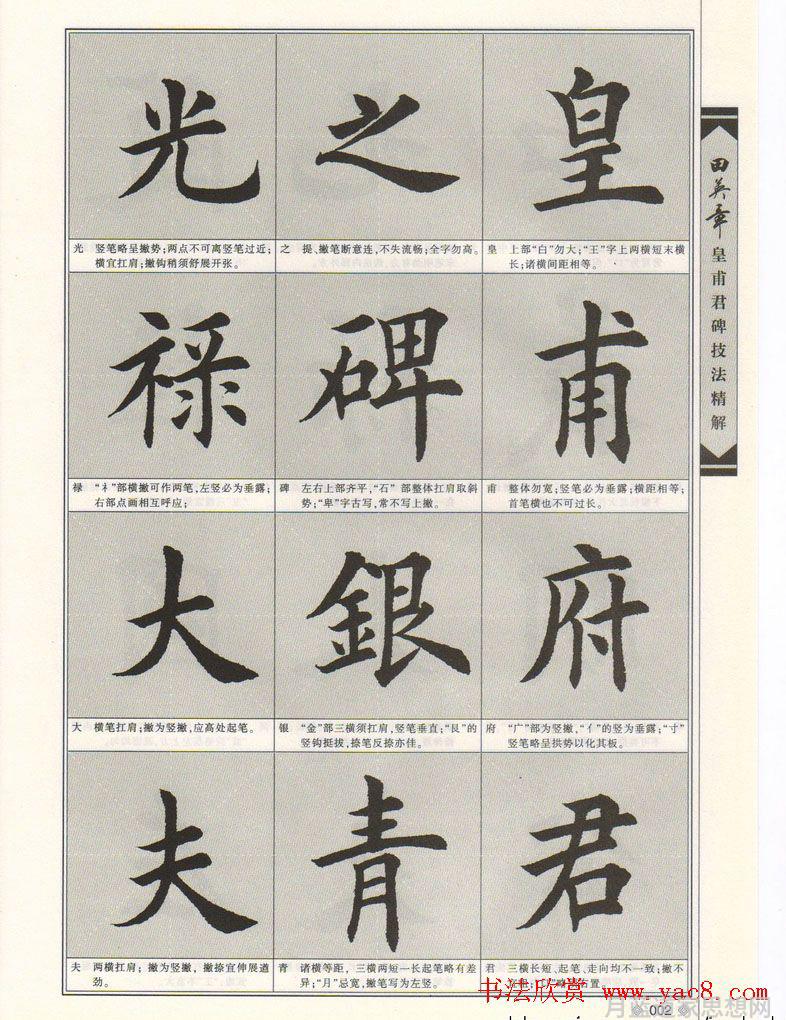 光
之
皇
光 竖笔略呈撇势；两点不可离竖笔过近；
横宜扛肩；撇钩稍须舒展开张。
之 提、撇笔断意连，不失流畅；全字勿高。
皇 上部“白”勿大；“王”字上两横短末横
长；诸横间距相等。
禄
碑
甫
禄 “礻”部横撇可作两笔，左竖必为垂露；
右部点画相互呼应；
碑 左右上部齐平，“石”部整体扛肩取斜
势；“卑”字古写，常不写上撇。
甫 整体勿宽；竖笔必为垂露；横距相等；
首笔横也不可过长。
大
銀
府
大 横笔扛肩；撇为竖撇，应高处起笔。
银 “金”部三横须扛肩，竖笔垂直；“艮”的
竖钩挺拔，捺笔反捺亦佳。
府 “广”部为竖撇，“亻”的竖为垂露；“寸”
竖笔略呈拱势以化其板。
夫
青
君
夫 两横扛肩；撇为竖撇，撇捺宜伸展遒
劲。
青 诸横等距，三横两短一长起笔略有差
异；“月”忌宽，撇笔写为左竖。
君 三横长短、起笔、走向均不一致；撇不
田英章
皇甫君碑技法精解
书法欣赏 www.yac8.com
002